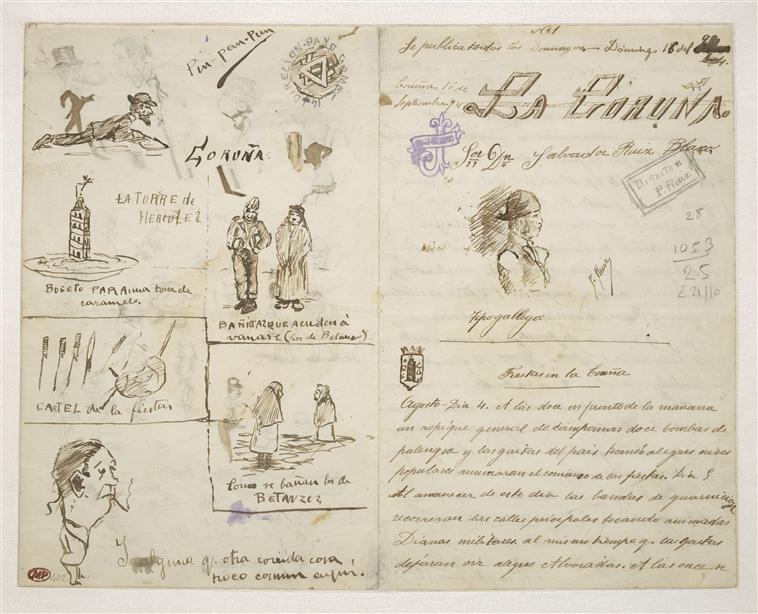 Pin-Pan-Pun
Coruña
LA TORRE de
HERCULEZ
BOCETO PARA una torre de
caramelo.
BAÑISTAS QUE acuden á
vañarse (los de Betanzos)
CARTEL de las fiestas
Como se bañan los de
BETANZEZ
Y alguna q. otra corrida cosa
poco comun aquí.
MP
402
Nº 1
Se publica todos los Domingos — Domingo 16 del
Coruña 16 de
Septiembre 94
LA CORUÑA.
Sor Dn Salvador Ruiz Blasco
DIRECTOR
P. Ruiz
28
1053
25
P. Ruiz
Tipo gallego
Fiestas en la Coruña
Agosto-Dia 4. A las doce en punto de la mañana
un repique general de campanas doce bombas de
palenque y las gaitas del pais tocando alegres aires
populares anunciaran el comienzo de las fiestas. Dia 5
Al amanecer de este dia las bandas de guarnicion
recorreran las calles principales tocando animadas
Dianas militares. al mismo tiempo q. las gaitas
dejaran oir alegres Alvoradas. A las once se